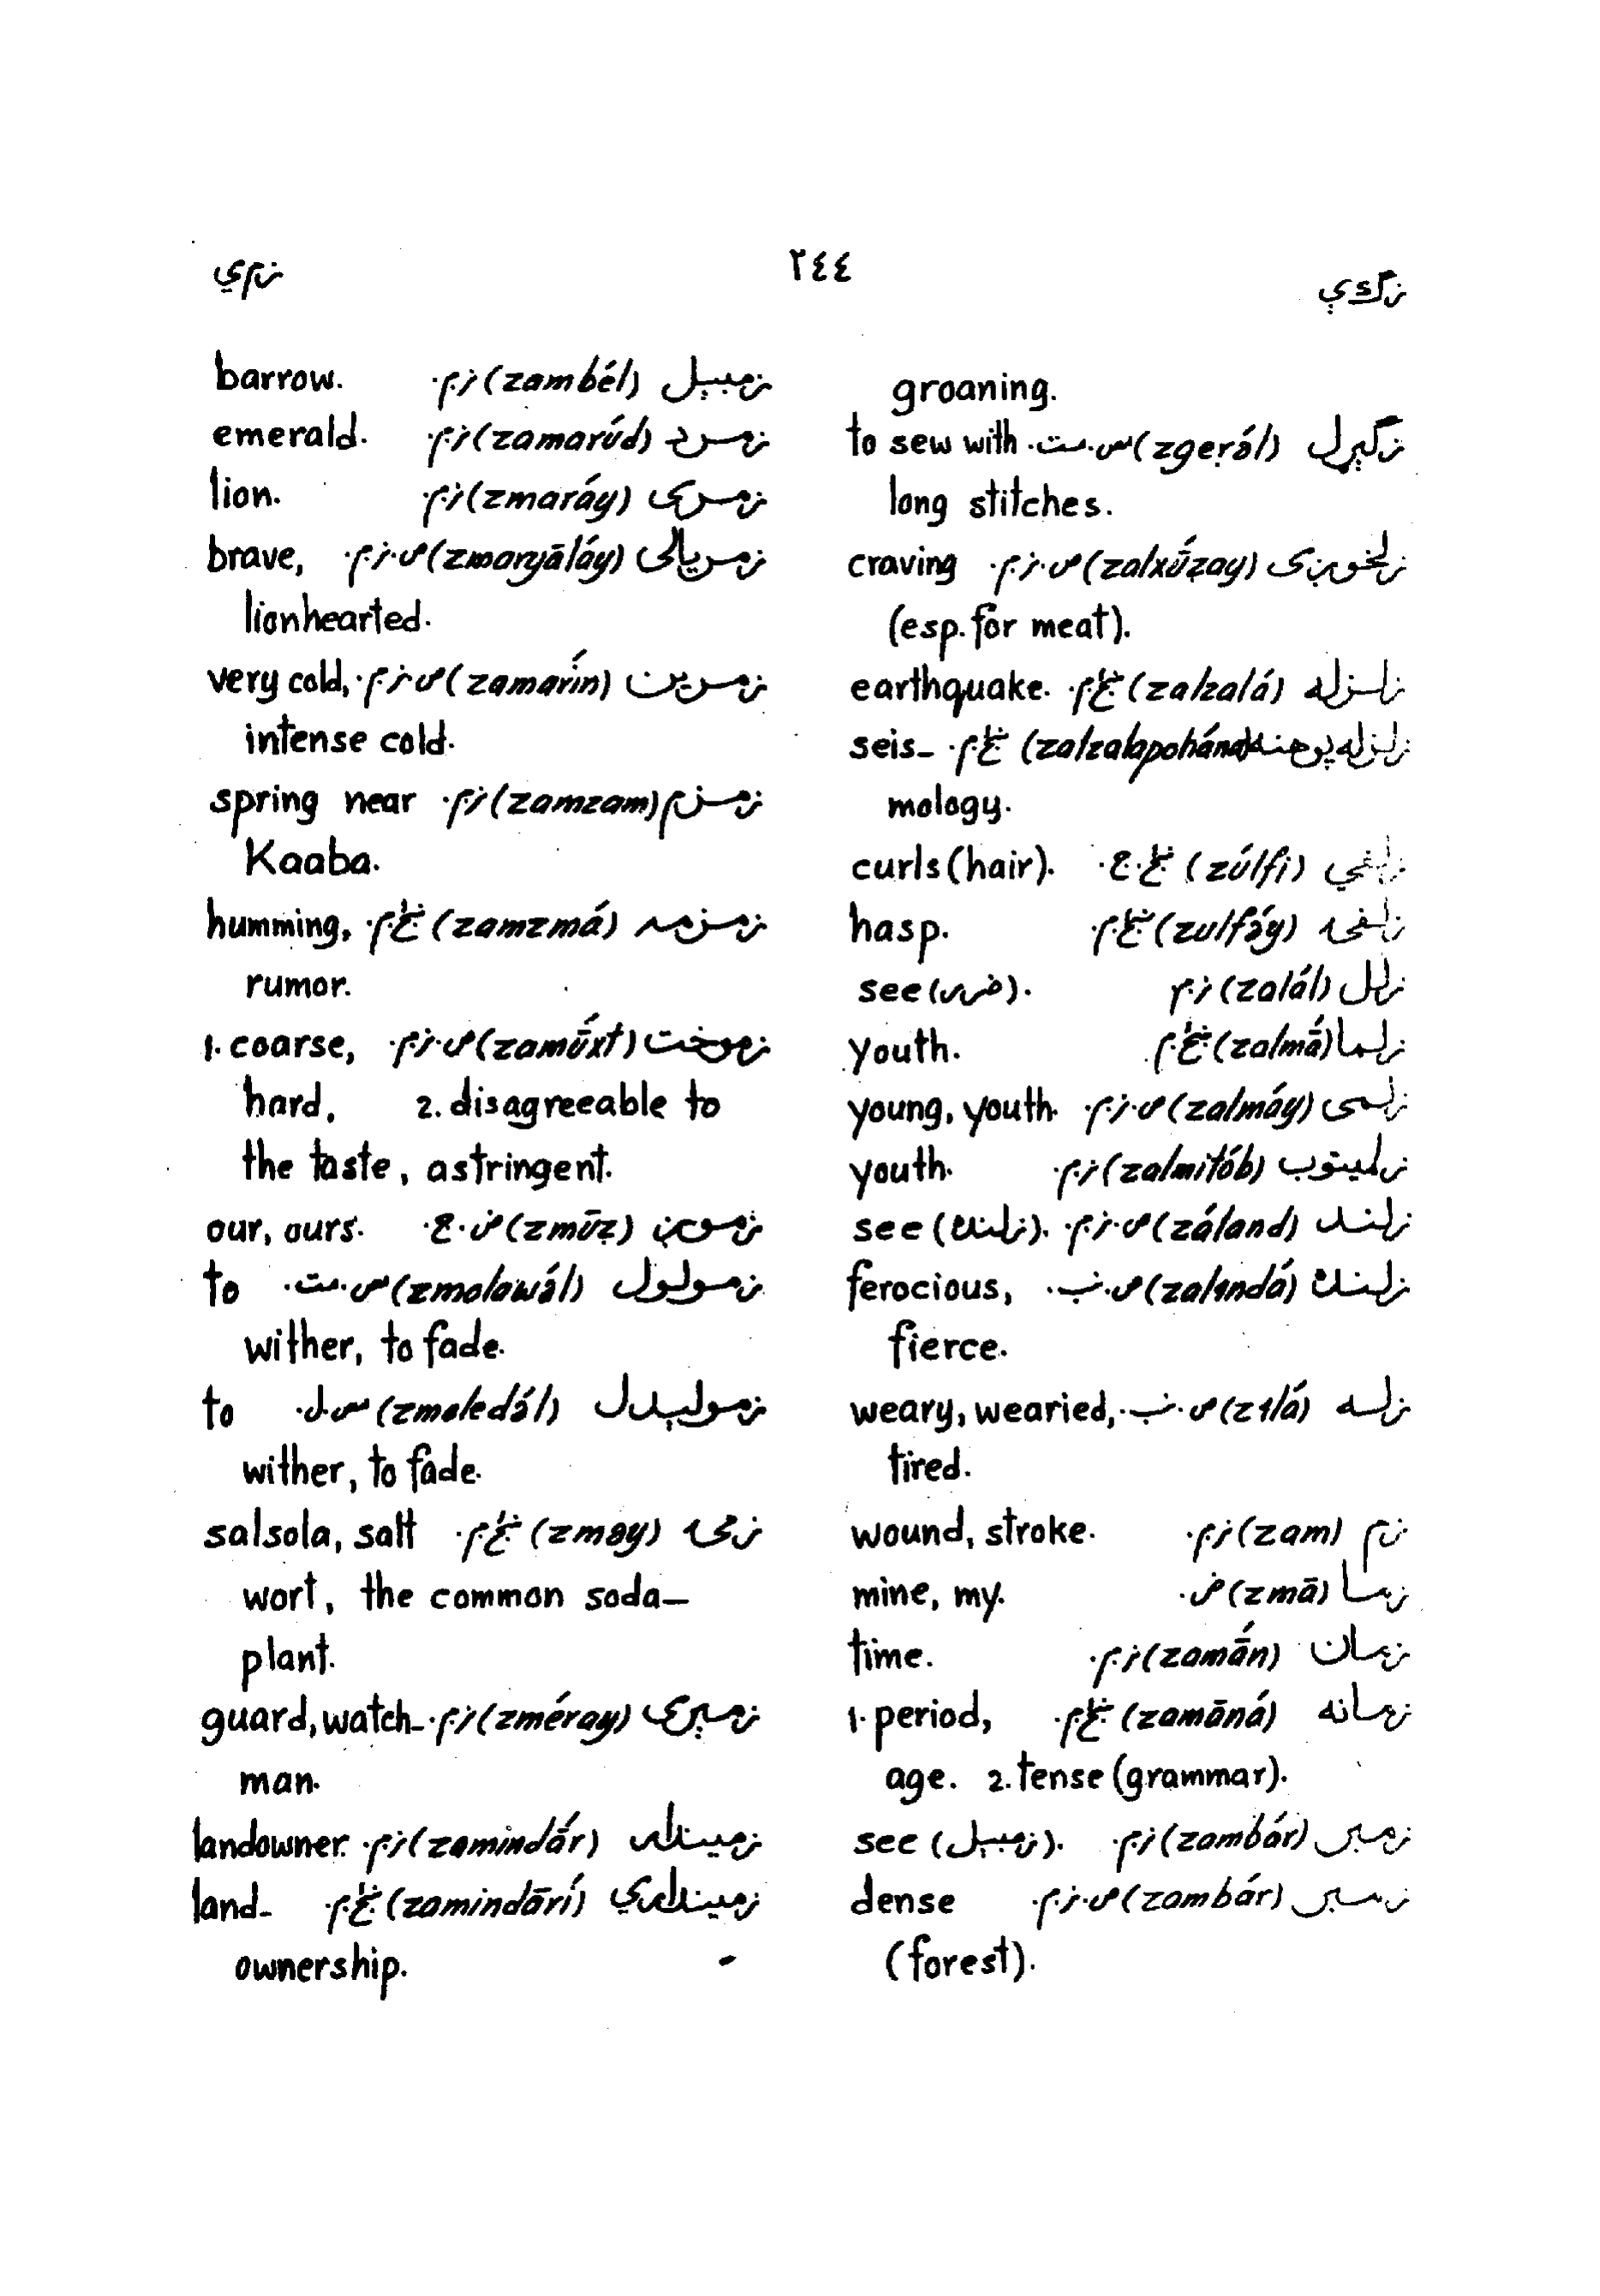 ٢٤٤
زمي
groaning.
زګېړل (zgeṛə́l) مص.مت. to sew with
long stitches.
زلخوږی (zalxū́ẓay) ص.ن.م. craving
(esp. for meat).
زلزله (zalzalá) ښځ.م. earthquake.
زلزله پوهنه (zalzalapohána) ښځ.م. seis-
mology.
زلفي (zúlfi) ښځ.ج. curls (hair).
زلفۍ (zulfə́y) ښځ.م. hasp.
زلل (zalál) ن.م see (ضرر).
زلما (zalmā́) ښځ.م. youth.
زلمی (zalmáy) ص.ن.م. young, youth.
زلميتوب (zalmitób) ن.م. youth.
زلند (záland) ص.ن.م. see (زلنده).
زلنده (zalindá) ص.ب. ferocious,
fierce.
زله (zılá) ص.ب. weary, wearied,
tired.
زم (zam) ن.م. wound, stroke.
زما (zmā) ض. mine, my.
زمان (zamā́n) ن.م. time.
زمانه (zamāná) ښځ.م. 1. period,
age. 2. tense (grammar).
زمبر (zambár) ن.م. see (زمبېل).
زمبر (zambár) ص.ن.م. dense
(forest).
زمبېل (zambél) ن.م. barrow.
زمرد (zamarúd) ن.م. emerald.
زمری (zmaráy) ن.م. lion.
زمريالی (zmaryāláy) ص.ن.م. brave,
lionhearted.
زمرين (zamarín) ص.ن.م. very cold,
intense cold.
زمزم (zamzam) ن.م. spring near
Kaaba.
زمزمه (zamzmá) ښځ.م. humming,
rumor.
زموخت (zamū́xt) ص.ن.م. 1. coarse,
hard, 2. disagreeable to
the taste, astringent.
زموږ (zmūẓ) ض.ج. our, ours.
زمولول (zmolawə́l) مص.مت. to
wither, to fade.
زمولېدل (zmoledə́l) مص.ل. to
wither, to fade.
زمۍ (zməy) ښځ.م. salsola, salt
wort, the common soda-
plant.
زمېری (zméray) ن.م. guard, watch-
man.
زميندار (zamindā́r) ن.م. landowner.
زمينداري (zamindārí) ښځ.م. land-
ownership.